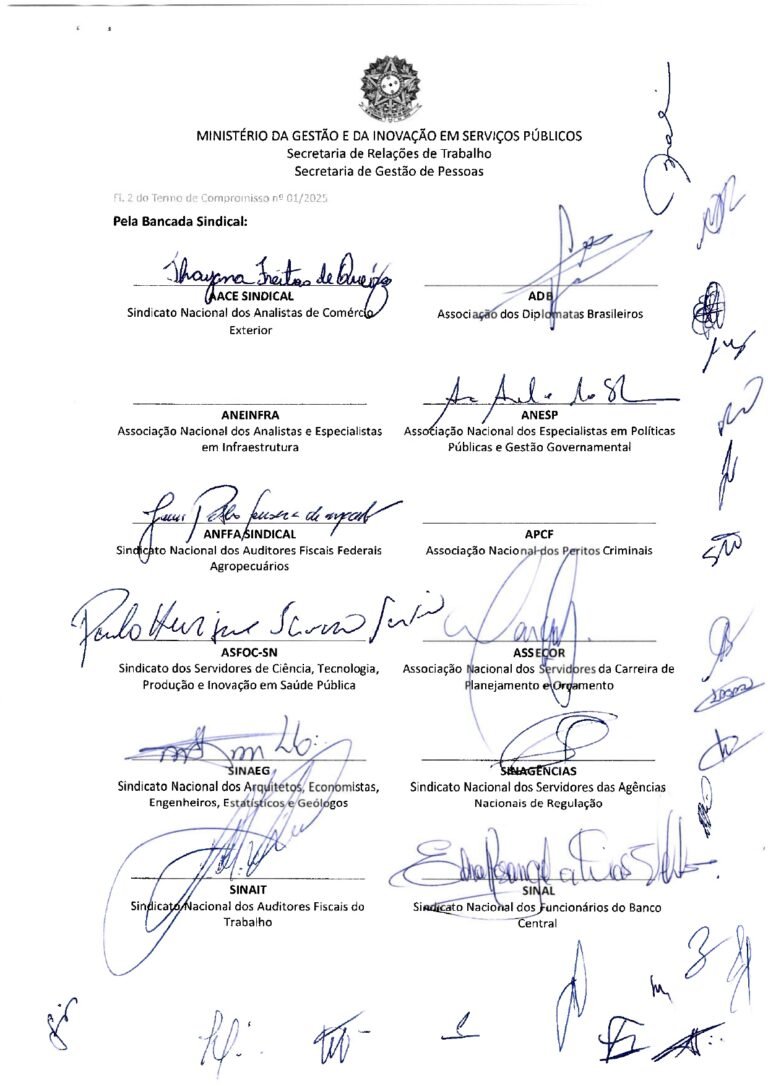 MINISTÉRIO DA GESTÃO E DA INOVAÇÃO EM SERVIÇOS PÚBLICOS
Secretaria de Relações de Trabalho
Secretaria de Gestão de Pessoas
Fl. 2 do Termo de Compromisso nº 01/2025
Pela Bancada Sindical:
Thayana Freitas de Queiroz
AACE SINDICAL
Sindicato Nacional dos Analistas de Comércio
Exterior
ADB
Associação dos Diplomatas Brasileiros
ANEINFRA
Associação Nacional dos Analistas e Especialistas
em Infraestrutura
ANESP
Associação Nacional dos Especialistas em Políticas
Públicas e Gestão Governamental
ANFFA SINDICAL
Sindicato Nacional dos Auditores Fiscais Federais
Agropecuários
APCF
Associação Nacional dos Peritos Criminais
Paulo Henrique
ASFOC-SN
Sindicato dos Servidores de Ciência, Tecnologia,
Produção e Inovação em Saúde Pública
ASSECOR
Associação Nacional dos Servidores da Carreira de
Planejamento e Orçamento
SINAEG
Sindicato Nacional dos Arquitetos, Economistas,
Engenheiros, Estatísticos e Geólogos
SINAGÊNCIAS
Sindicato Nacional dos Servidores das Agências
Nacionais de Regulação
SINAIT
Sindicato Nacional dos Auditores Fiscais do
Trabalho
SINAL
Sindicato Nacional dos Funcionários do Banco
Central